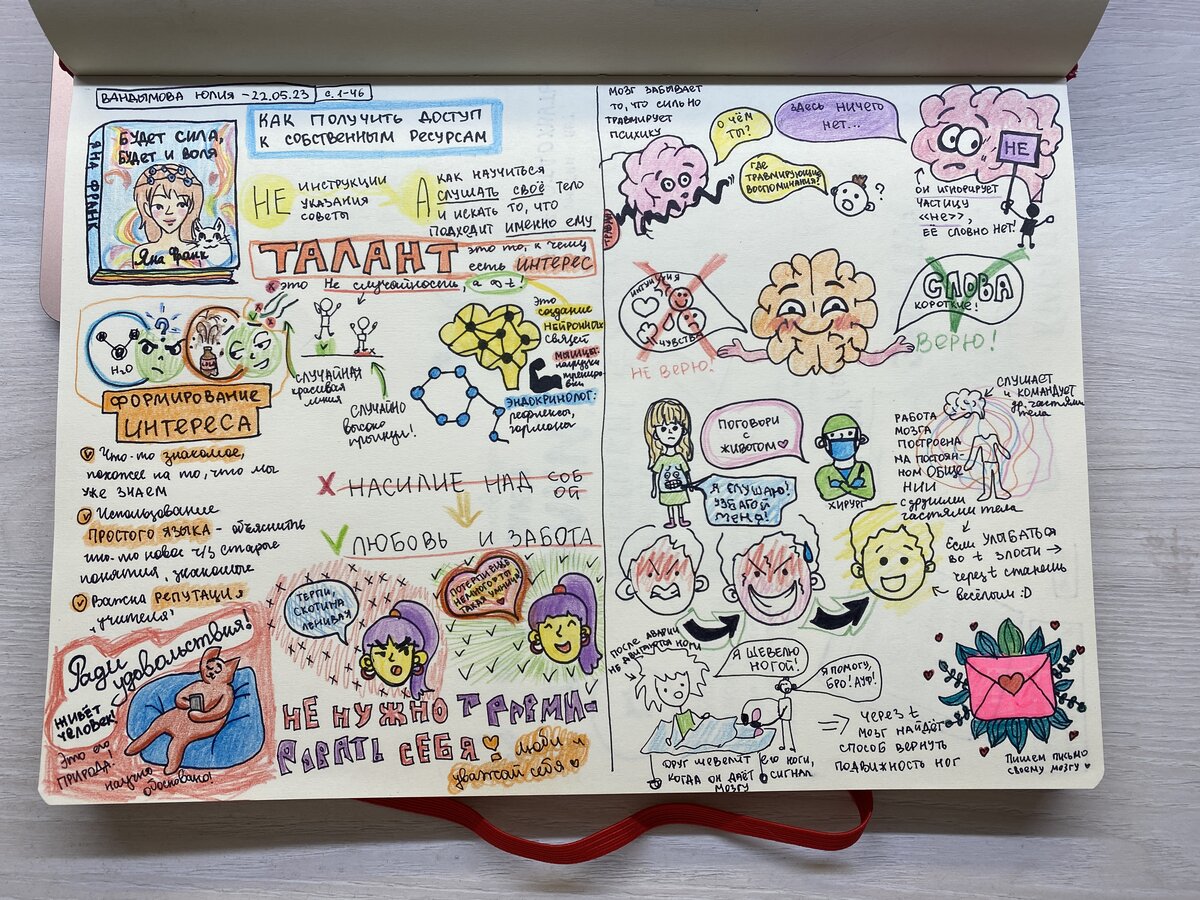 ВАНДЫМОВА ЮЛИЯ - 22.05.23
с. 1-46
ЯНА ФРАНК
БУДЕТ СИЛА,
БУДЕТ И ВОЛЯ
Яна Франк
КАК ПОЛУЧИТЬ ДОСТУП
К СОБСТВЕННЫМ РЕСУРСАМ
НЕ
ИНСТРУКЦИИ
УКАЗАНИЯ
СОВЕТЫ
А
КАК НАУЧИТЬСЯ
СЛУШАТЬ СВОЁ ТЕЛО
И ИСКАТЬ ТО, ЧТО
ПОДХОДИТ ИМЕННО ЕМУ
ТАЛАНТ
это то, к чему
есть ИНТЕРЕС
это Не случайность, а
СЛУЧАЙНАЯ
красивая
линия
СЛУЧАЙНО
высоко
прыгнул!
Это
создание
нейронных
связей
МЫШЦЫ:
нагрузки
трениров
ки
ЭНДОКРИНОЛОГ:
рефлексы,
гормоны
H₂O
?
ФОРМИРОВАНИЕ
ИНТЕРЕСА
Что-то знакомое,
похожее на то, что мы
уже знаем
Использование
ПРОСТОГО ЯЗЫКА - объяснить
что-то новое ч/з старые
понятия, знакомые
Важна РЕПУТАЦИЯ
"учителя"
X НАСИЛИЕ НАД СОБ
ОЙ
ЛЮБОВЬ И ЗАБОТА
ТЕРПИ,
СКОТИНА
ЛЕНИВАЯ
ПОТЕРПИ ЕЩЁ
НЕМНОГО, ТЫ
ТАКАЯ УМНИЦА!
Ради
удовольствия!
ЖИВЁТ
ЧЕЛОВЕК!
Это его
ПРИРОДА.
научно
обосновано!
НЕ НУЖНО ТРАВМИ-
РОВАТЬ СЕБЯ
люби и
уважай себя
МОЗГ ЗАБЫВАЕТ
ТО, ЧТО СИЛЬНО
ТРАВМИРУЕТ
ПСИХИКУ
О ЧЁМ
ТЫ?
ЗДЕСЬ НИЧЕГО
НЕТ...
ГДЕ
ТРАВМИРУЮЩИЕ
ВОСПОМИНАНИЯ?
?
НЕ
ОН ИГНОРИРУЕТ
ЧАСТИЦУ
«НЕ»,
ЕЁ СЛОВНО НЕТ!
ИНТУИЦИЯ
ЧУВСТВА
НЕ ВЕРЮ!
СЛОВА
КОРОТКИЕ!
ВЕРЮ!
ПОГОВОРИ
С
ЖИВОТОМ
Я СЛУШАЮ!
УЗБАГОЙ
МЕНЯ!
ХИРУРГ
СЛУШАЕТ
И КОМАНДУЕТ
др. частями
тела
РАБОТА
МОЗГА
ПОСТРОЕНА
НА ПОСТОЯН-
НОМ ОБЩЕ
НИИ
С ДРУГИМИ
ЧАСТЯМИ ТЕЛА
ЕСЛИ УЛЫБАТЬСЯ
ВО t ЗЛОСТИ →
через t станешь
весёлым :D
ПОСЛЕ АВАРИИ
НЕ ДВИГАЮТСЯ НОГИ
Я ШЕВЕЛЮ
НОГОЙ!
Я ПОМОГУ,
БРО! АУФ!
ДРУГ ШЕВЕЛИТ ЕГО НОГИ,
КОГДА ОН ДАЁТ СИГНАЛ
МОЗГУ
⇒ ЧЕРЕЗ t
МОЗГ НАЙДЁТ
СПОСОБ ВЕРНУТЬ
ПОДВИЖНОСТЬ НОГ
Пишем письмо
своему мозгу